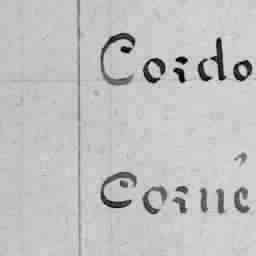 Coido
Coiné